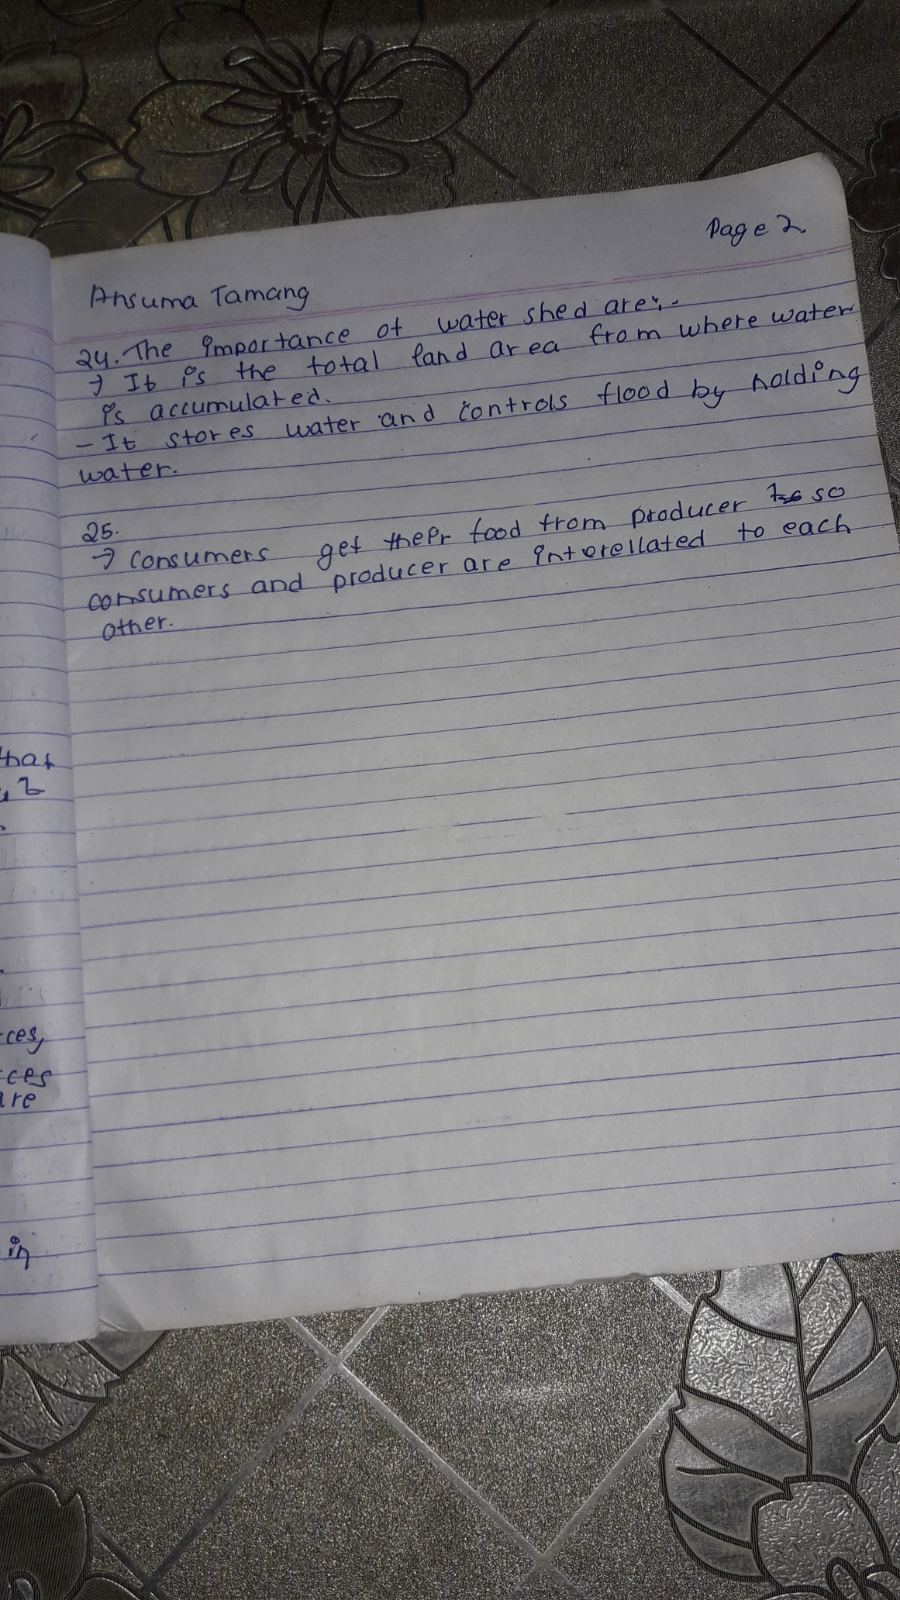 Page 2.
Ansuma Tamang
24. The importance of water shed are:-
→ It is the total land area from where water
is accumulated.
- It stores water and controls flood by holding
water.
25.
→ consumers get their food from producer so
consumers and producer are interellated to each
other.
that
2
ces,
ces
are
in